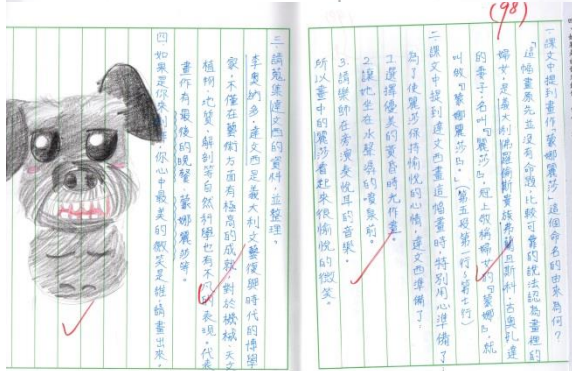 (98)
一課文中提到畫作「蒙娜麗莎」這個命名的由來為何?
「這幅畫原先並沒有命題,比較可靠的說法認為畫裡的
婦女,是義大利佛羅倫斯貴族弗蘭且斯利·古奧孔達
的妻子,名叫『麗莎』,冠上敬稱婦女的『蒙娜』,就
叫做『蒙娜麗莎』。」(第五段第一行~第七行)
二課文中提到達文西畫這幅畫時特別用心準備了
為了使麗莎保持愉悅的心情,達文西準備了:
1.選擇優美的黃昏時光作畫。
2.讓她坐在水聲潺潺的噴泉前。
3.請樂師在旁演奏悅耳的音樂。
所以畫中的麗莎看起來很愉悅的微笑。
三請蒐集達文西的資料,並整理。
李奧納多·達文西是義大利文藝復興時代的博學
家,不僅在藝術方面有極高的成就,對於機械、天文
植物、地質、解剖等自然科學也有不凡的表現。代表
畫作有最後的晚餐、蒙娜麗莎等。
四如果是你來創作,你心中最美的微笑是誰請畫出來。